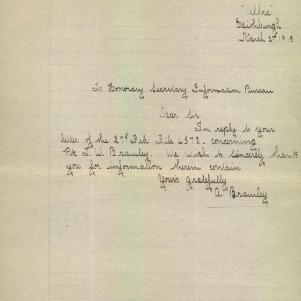 "Allre"
Edithburgh
March 2nd 1918
To Honorary Secretary Information Bureau
Dear Sir
In reply to your
letter of the 27th Feb. File 6572. concerning
Pte L. W. Bramley. we wish to sincerely thank
you for information therein contain
Yours Gratefully
A. Bramley